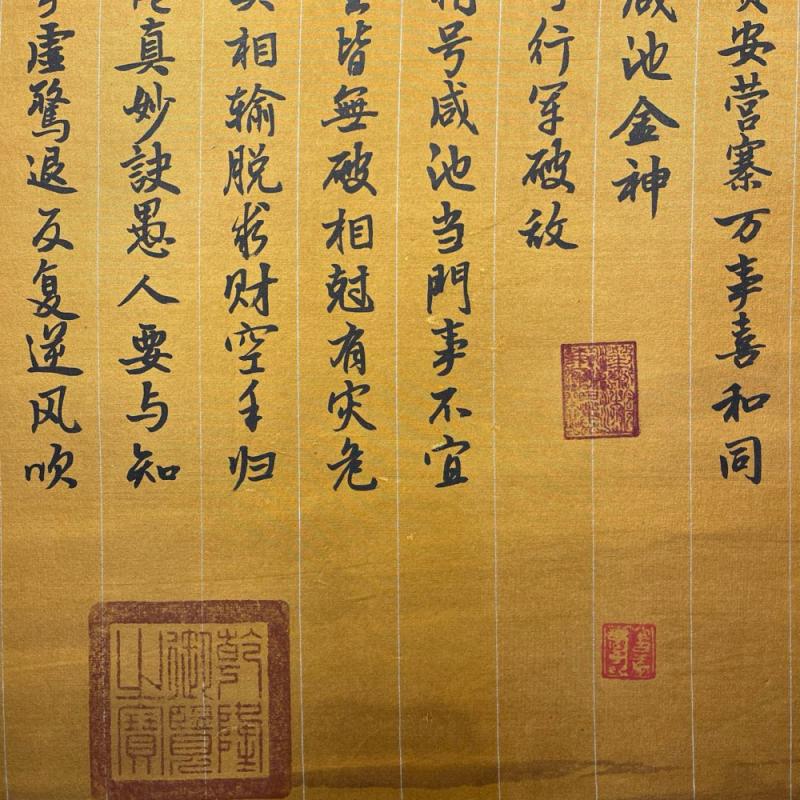 安营寨万事喜和同
池金神
行军破敌
号咸池当門事不宜
皆無破相尅有灾危
相输脱求财空手归
真妙訣愚人要与知
虚驚退反复逆风吹
乾隆御覽之寶